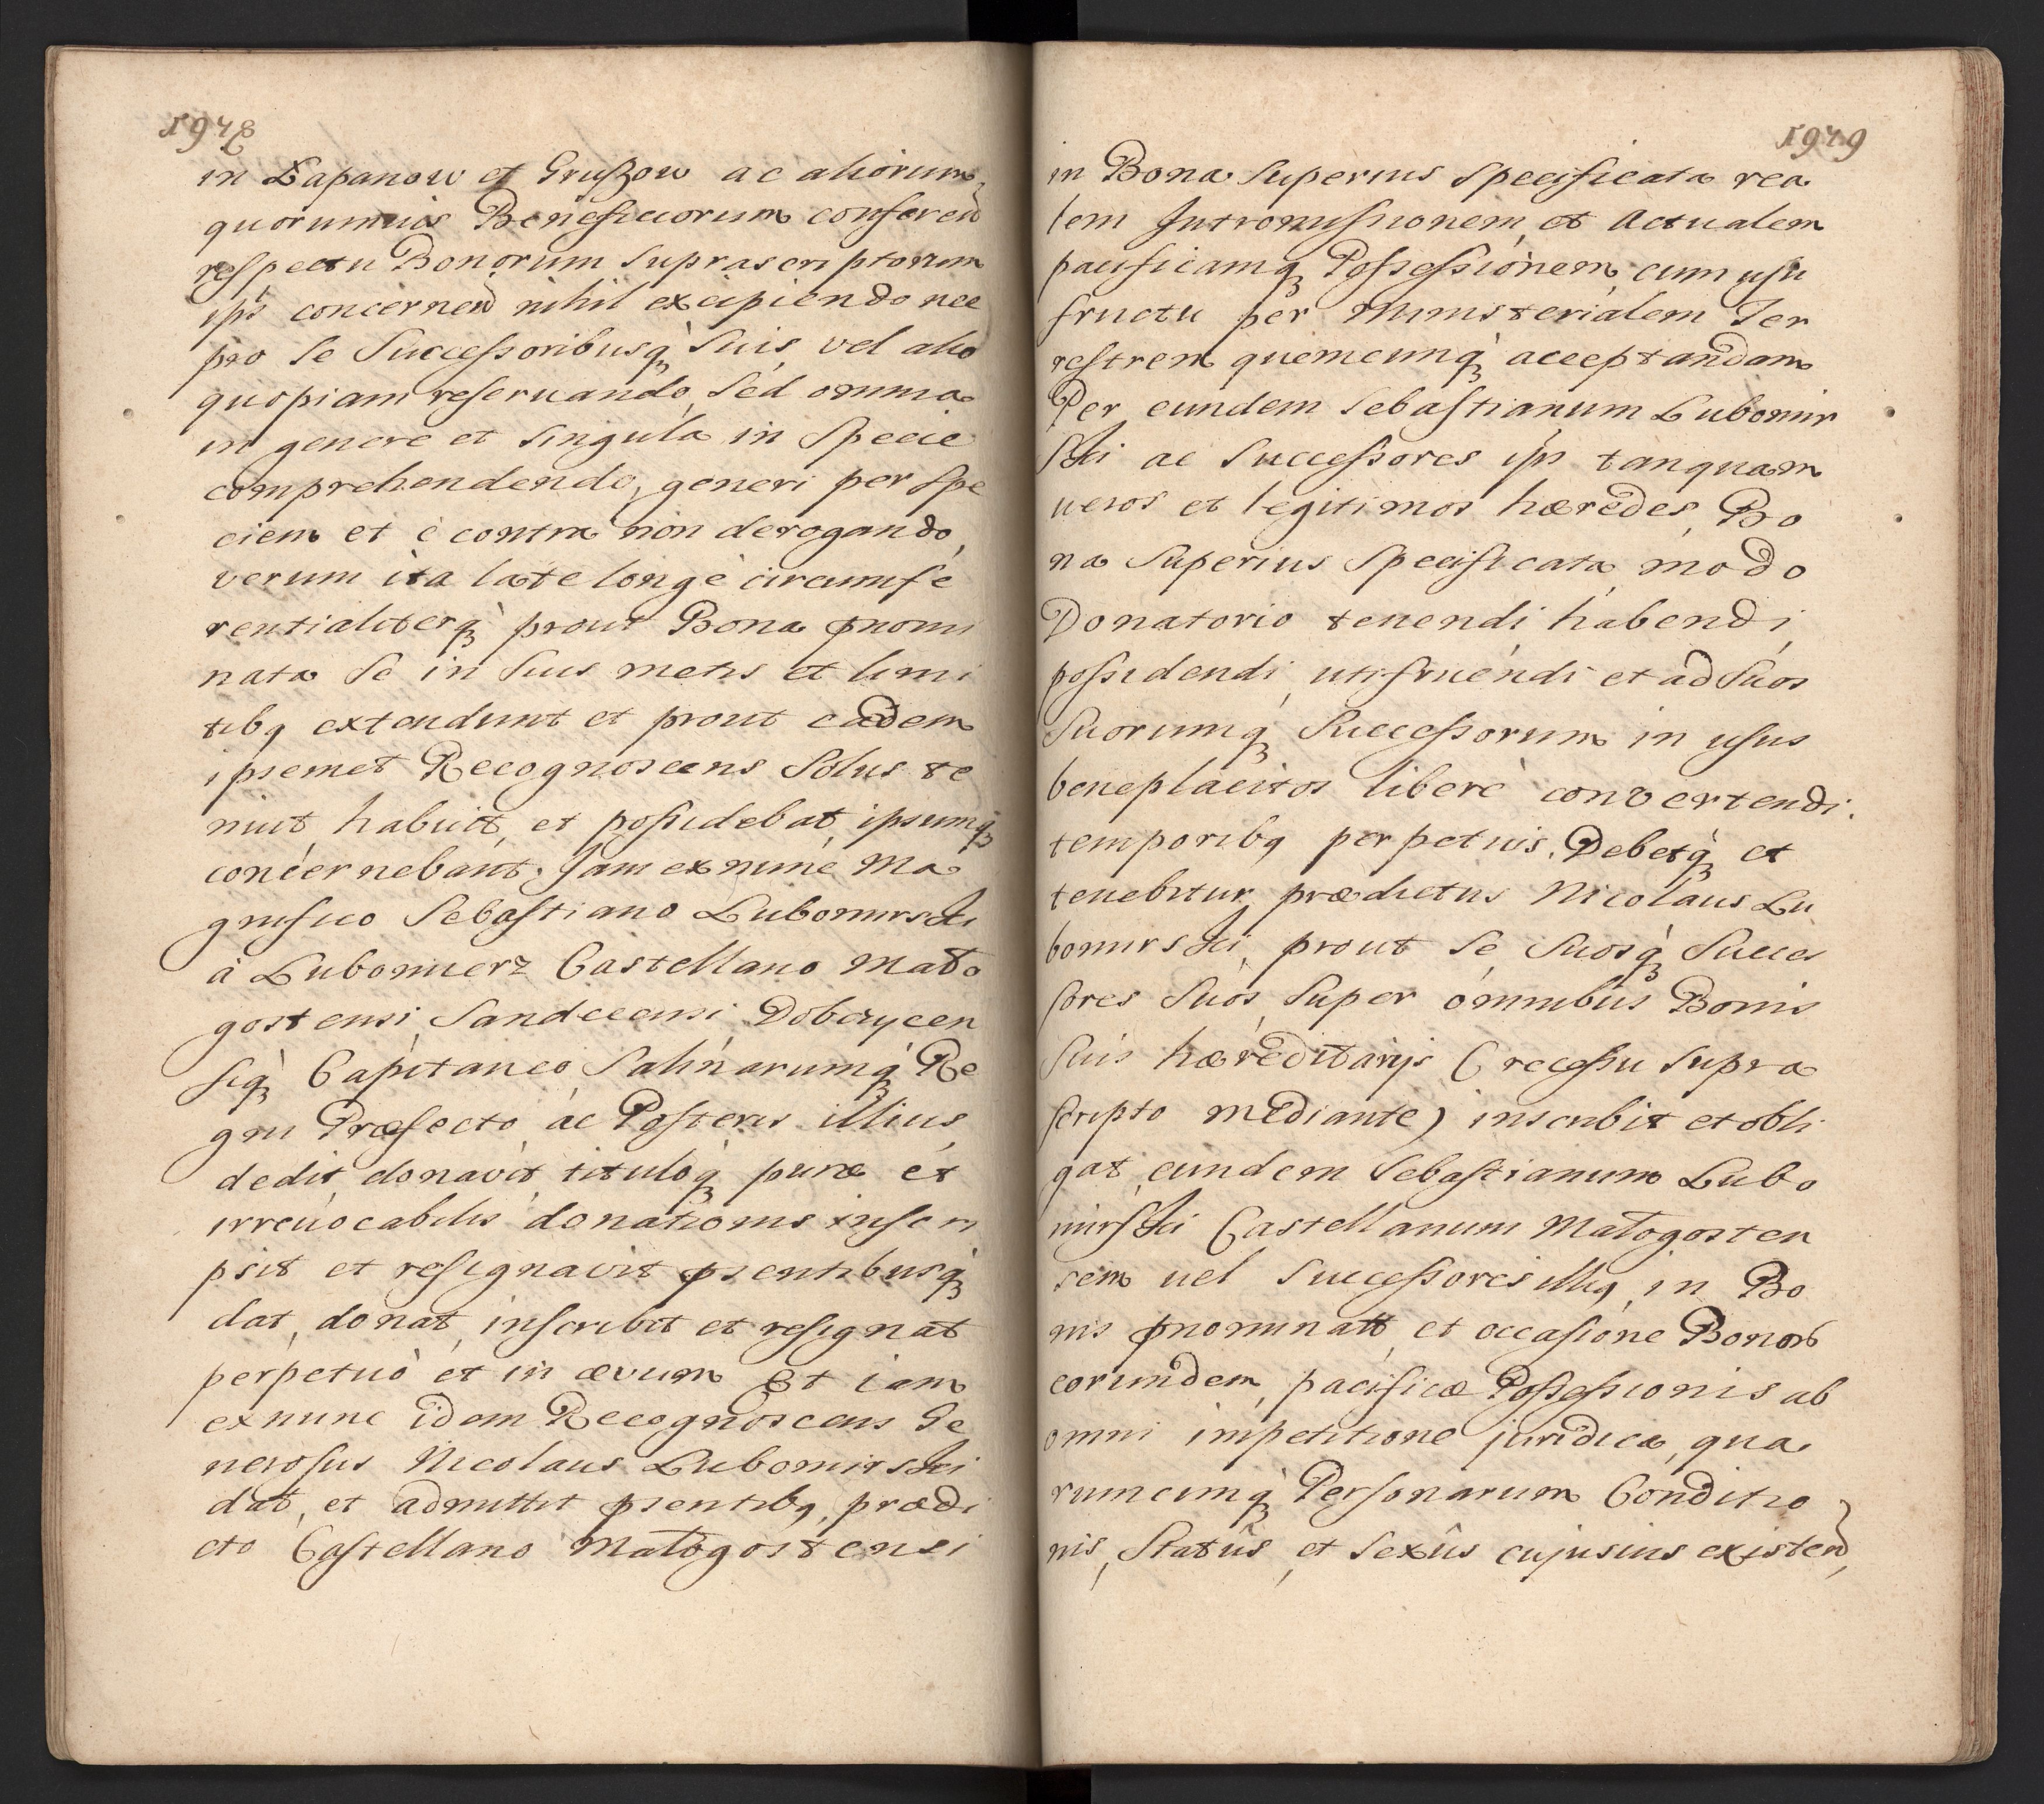 1978
in Łapanow et Gruszow ac aliorum
quorumuis Beneficiorum conferen͠d
respectu Bonorum suprascriptorum
ips͠ concernen͠d nihil excipiendo nec
pro se Successoribusq́ꝫ suis vel alio
quopiam reseruando, sed omnia
in genere et singula in specie
comprehendendo, generi per spe
ciem et è contra non derogando,
verum ita late longè circumfe
rentialiterq́ꝫ prout Bona p͠nomi
nata se in suis metis et limi
tibꝫ extendunt et prout eadem
ipsemet Recognoscens solus te
nuit habuit, et possidebat, ipsumq́ꝫ
concernebant. Jam ex nunc Ma
gnifico Sebastiano Lubomirski
à Lubomierz Castellano Mało
gostensi, Sandecensi, Dobczycen
siq́ꝫ Capitaneo Salinarumq́ꝫ Re
gni Præfecto, ac Posteris illius,
dedit, donavit, tituloq́ꝫ puræ et
irreuocabilis donationis inscri
psit et resignavit p͠sentibusq́ꝫ
dat, donat, inscribit et resignat
perpetuò et in ævum Et iam
ex nunc idem Recognoscens Ge
nerosus Nicolaus Lubomirski
dat, et admittit p͠sentibꝫ, prædi
cto Castellano Małogostensi
1979
in Bona superius specificata rea
lem Intromissionem, et Actualem
pacificamq́ꝫ Possessionem, cum usu
fructu per Ministerialem Ter
restrem quemcunq́ꝫ acceptandam
Per eundem Sebastianum Lubomir
ski ac Successores ips͠ tanquam
ueros et legitimos hæredes, Bo
na superius specificata, modo
Donatorio tenendi habendi,
possidendi, utifruendi et ad suos
Suorumq́ꝫ Successorum in usus
beneplacitos liberè convertendi.
temporibꝫ perpetuis. Debetq́ꝫ et
tenebitur prædictus Nicolaus Lu
bomirski, prout se suosq́ꝫ Succes
sores suos, super omnibus Bonis
suis hæreditarijs (recessu supra
scripto mediante) inscribit et obli
gat, eundem Sebastianum Lubo
mirski Castellanum Małogosten
sem uel Successores illiꝫ, in Bo
nis p͠nominatt͠, et occasione Bonor͠
eorumdem, pacificæ Possessionis ab
omni impetitione juridica, qua
rumcunq́ꝫ Personarum Conditio
nis, Statûs, et Sexûs cujusuis existen͠d,